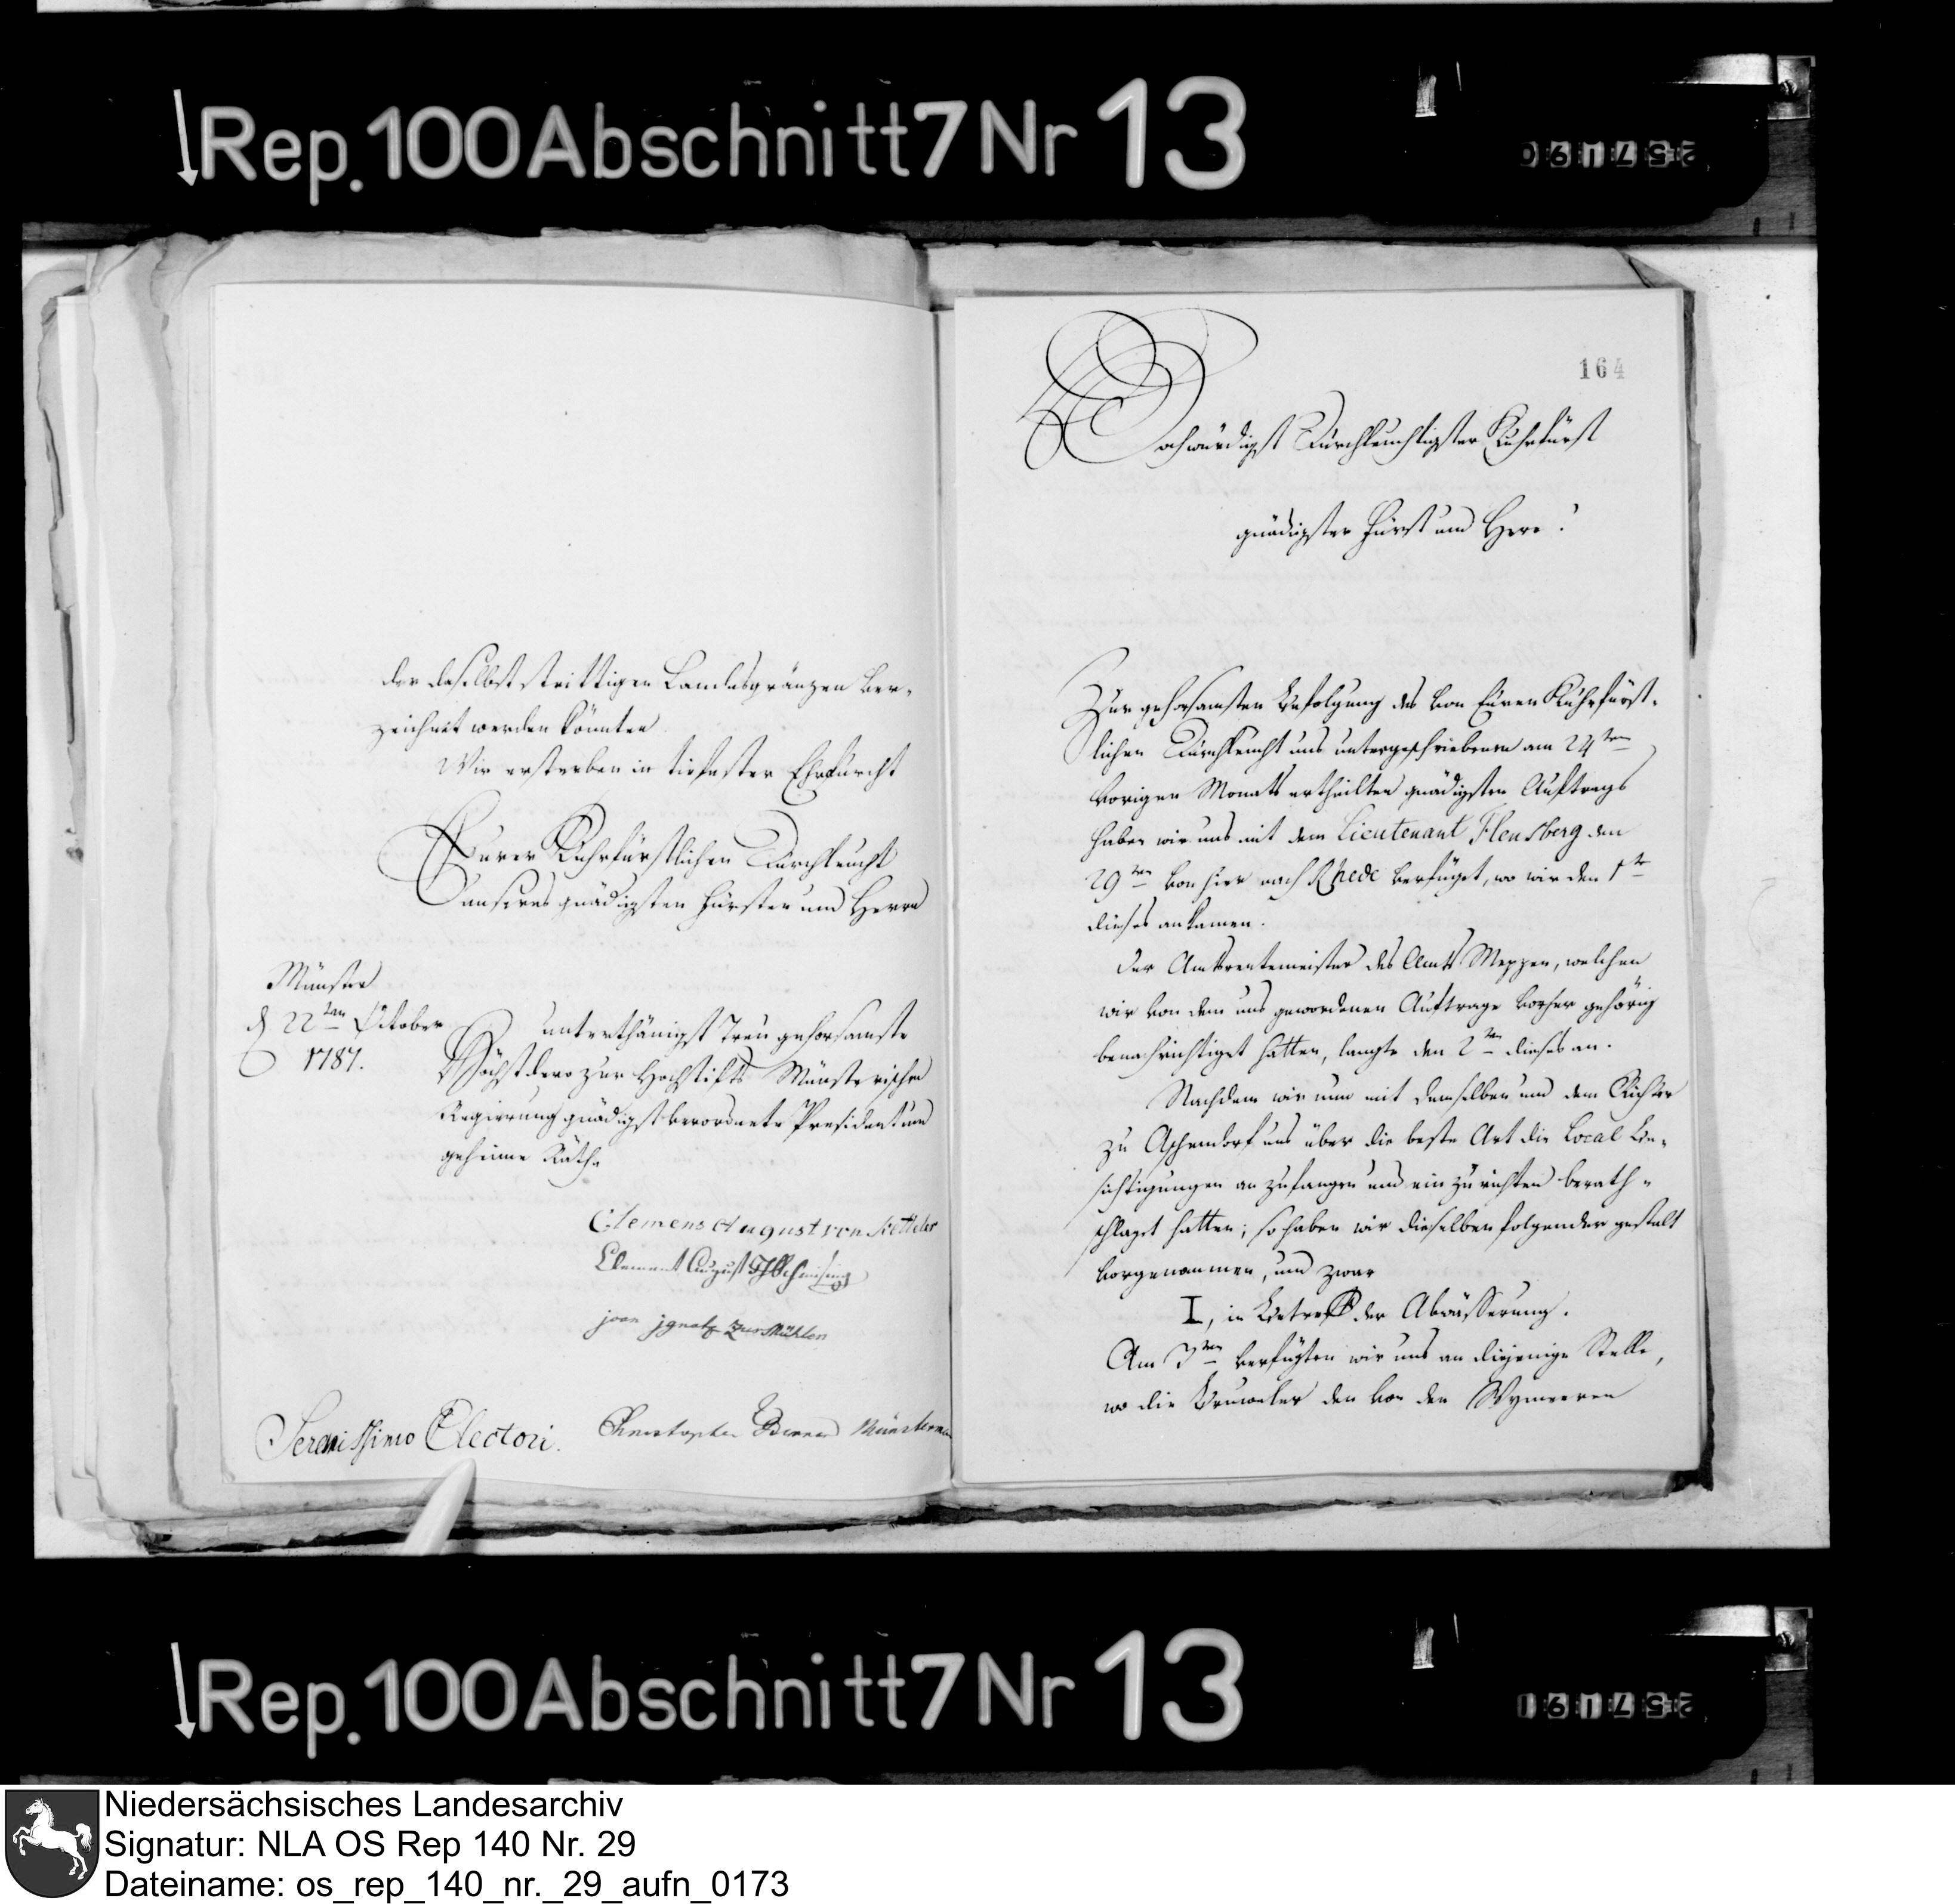 Rep. 100 Abschnitt 7 Nr 13
257190
der daselbst strittigen Landesgränzen ver-
zeichnet werden könnten
Wir ersterben in tiefester Ehrfurcht
Eurer Kuhrfürstlichen Durchleucht
unseres gnädigsten Fürsten und Herrn
Münster
d 22ten October
1787.
unterthänigst Treu gehorsamste
Höchstdero zur Hochstifts Münsterischen
Regierung gnädigst verordnete President und
geheime Räthe
Clemens August von Ketteler
Clement August
joan jgnatz Zur Mühlen
Serenissimo Electori.
Christopher Münsterman
164
Hochwürdigst Durchleuchtigster Kuhrfürst
gnädigster Fürst und Herr!
Zur gehorsamsten Befolgung des von Euren Kuhrfürst-
lichen Durchleucht uns untergeschriebenen am 24ten
vorigen Monats ertheilten gnädigsten Auftrags
haben wir uns mit dem Lieutenant Flensberg den
29ten von hier nach Rhede verfüget, wo wir den 1te
dieses ankamen.
Der Amtsrentemeister des Amts Meppen, welchen
wir von dem uns gewordenen Auftrage vorher gehörig
benachrichtiget hatten, langte den 2ten dieses an.
Nachdem wir nun mit demselben und dem Richter
zu Aschendorf uns über die beste Art die Local Be-
sichtigungen an zufangen und ein zu richten berath-
schlaget hatten; so haben wir dieselben folgender gestalt
vorgenommen, und zwar
I, in Betreff der Abwässerung.
Am 3ten verfügten wir uns an diejenige Stelle,
wo die Brualer den von den Wymeeren
Rep. 100 Abschnitt 7 Nr 13
257191
Niedersächsisches Landesarchiv
Signatur: NLA OS Rep 140 Nr. 29
Dateiname: os_rep_140_nr._29_aufn_0173